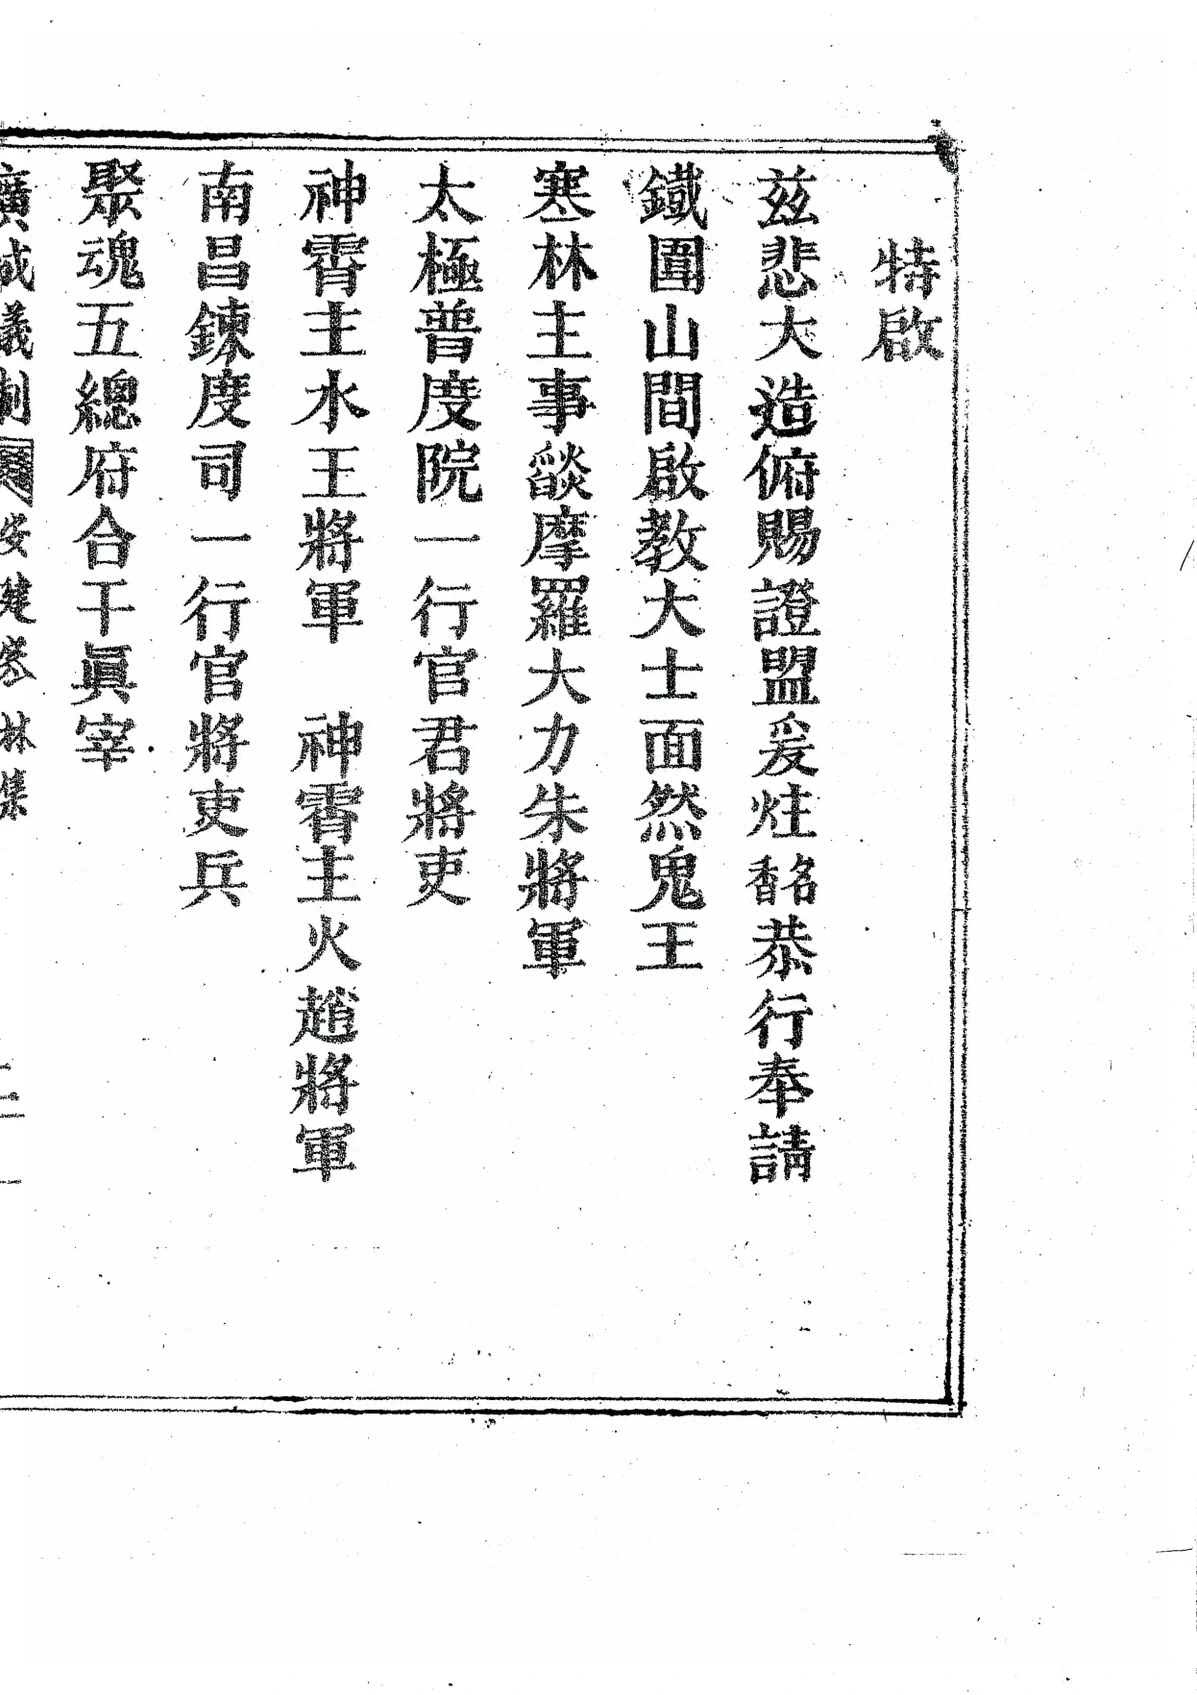 特啟
茲悲大造俯賜證盟爰炷香名恭行奉請
鐵圍山間啟教大士面然鬼王
寒林主事燄摩羅大力朱將軍
太極普度院一行官君將吏
神霄主水王將軍　神霄主火趙將軍
南昌鍊度司一行官將吏兵
聚魂五總府合干眞宰
廣成儀制 安建寒林集